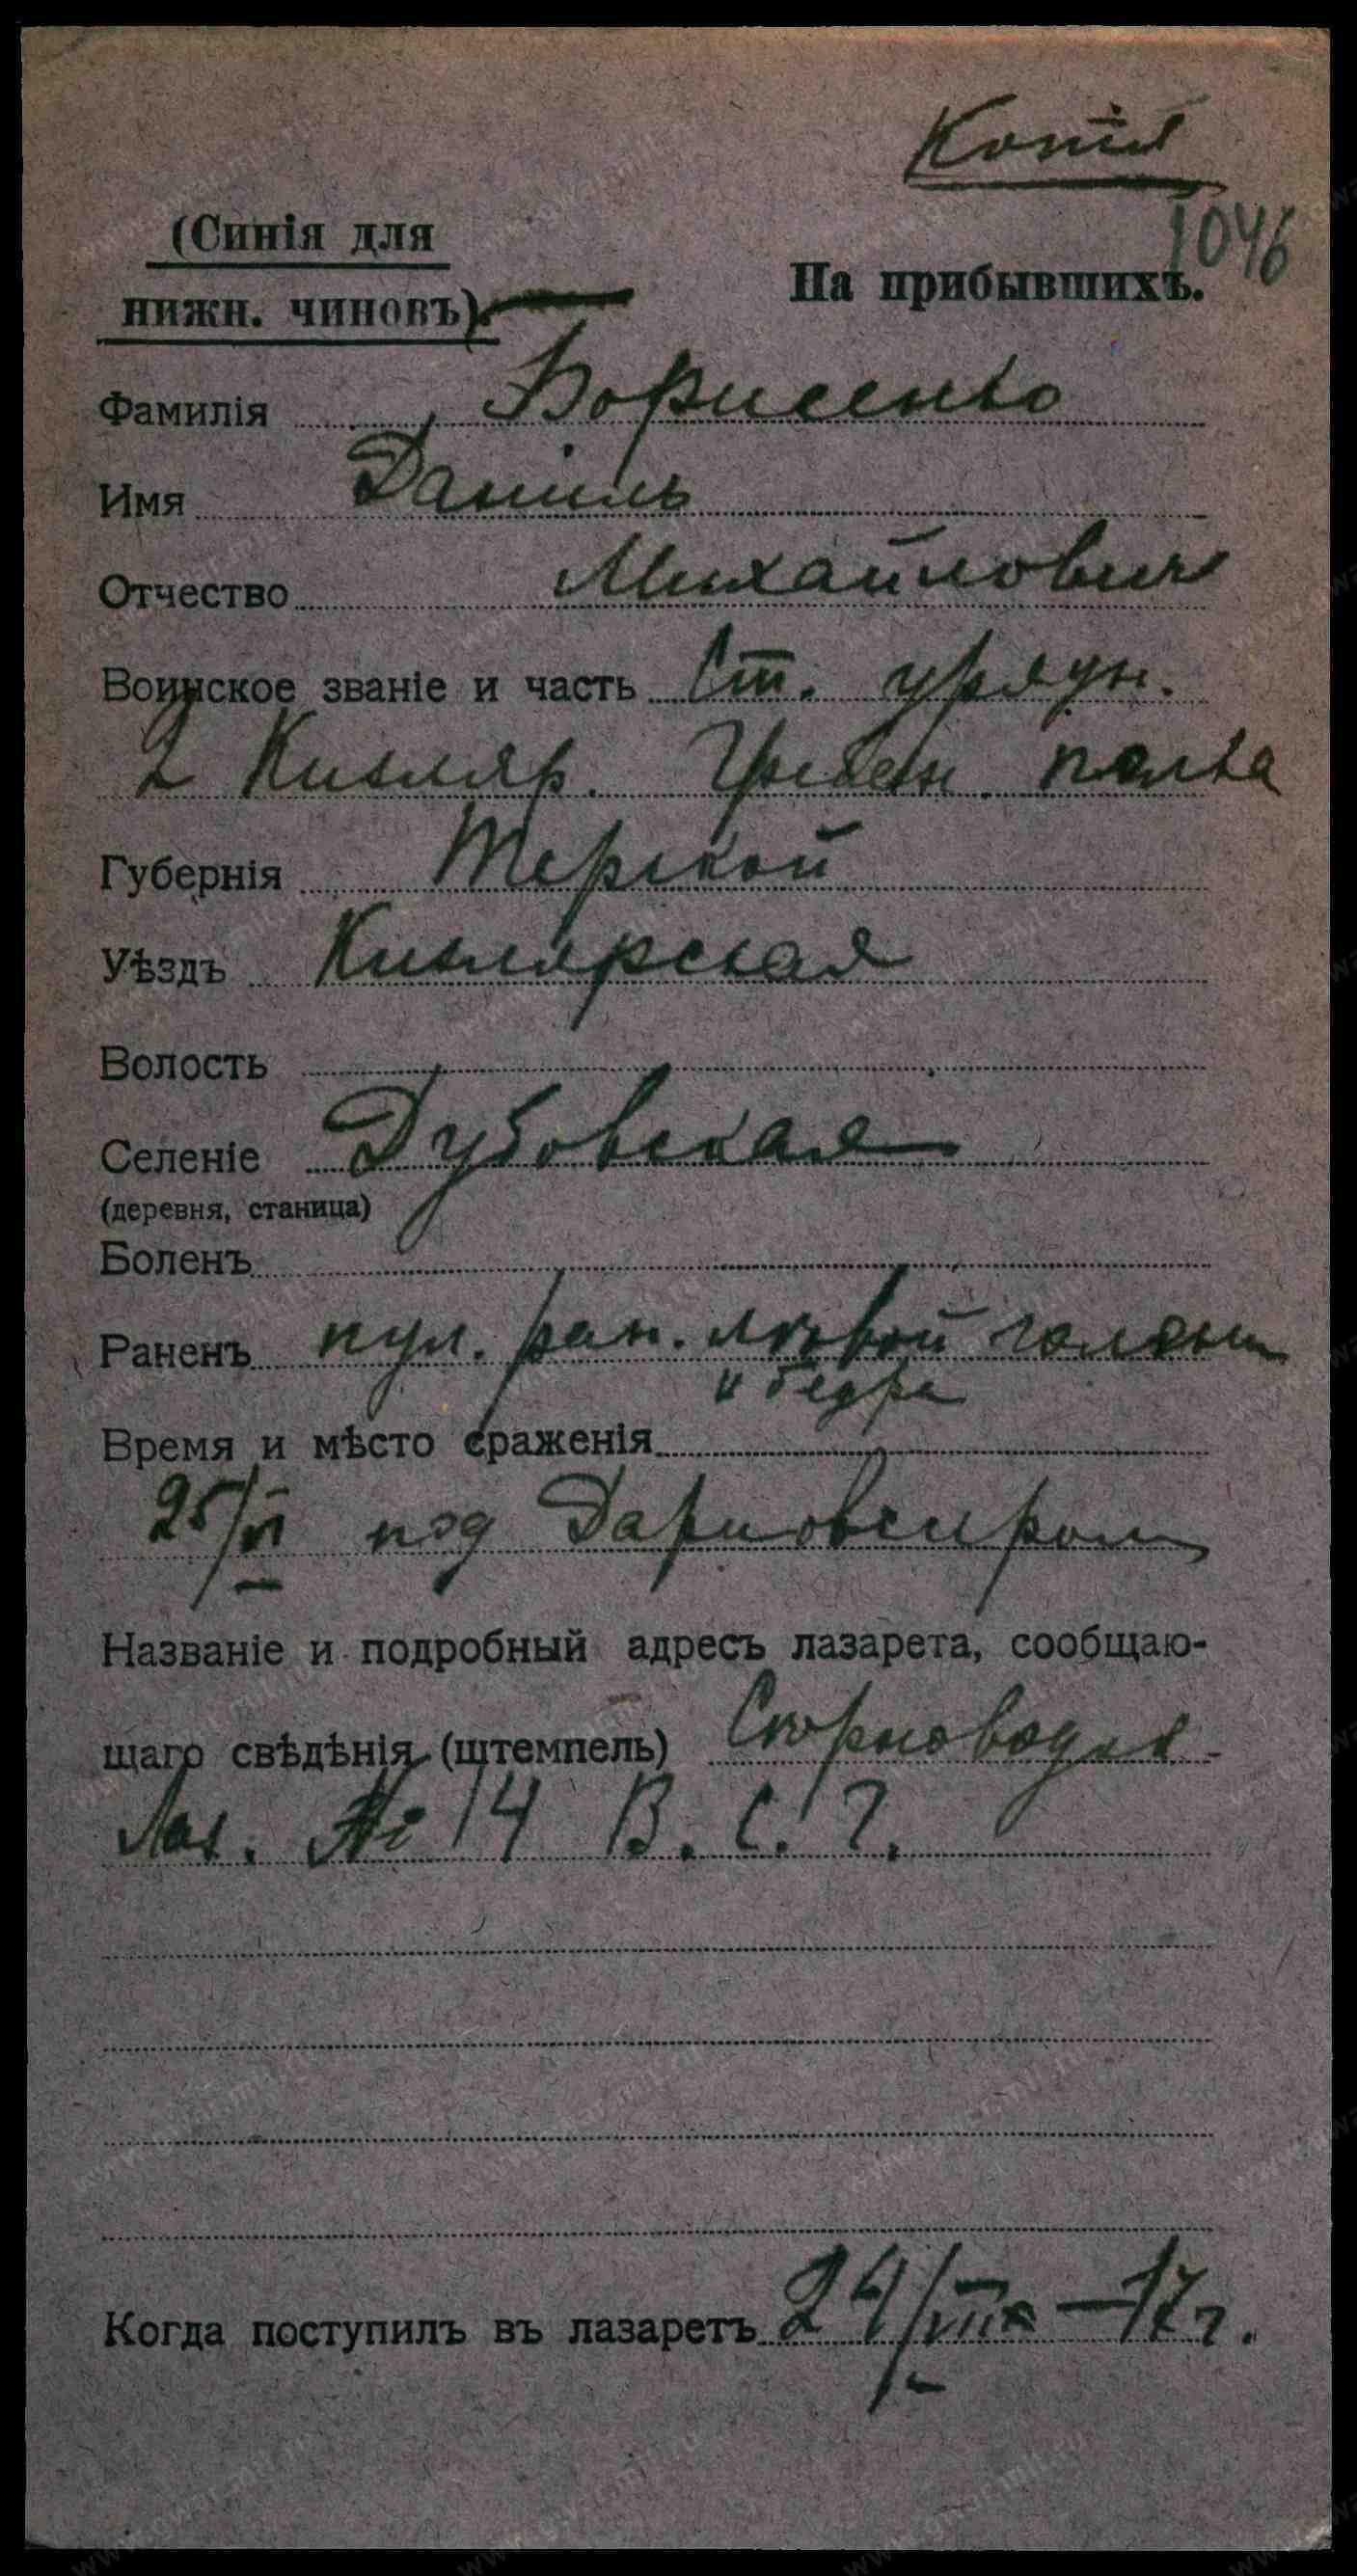 Копія
1046
(Синія для
На прибывшихъ.
нижн. чиновъ).
Фамилія Борисенко
Имя Даніилъ
Отчество Михайлович
Воинское званіе и часть Ст. урядн.
2 Кизляр. Гребен. полка
Губернія Терской
Уѣздъ Кизлярская
Волость
Селеніе Дубовская
(деревня, станица)
Боленъ
Раненъ пул. ран. лѣвой голени
и бедра
Время и мѣсто сраженія
25/VI под
Названіе и подробный адресъ лазарета, сообщаю-
щаго свѣдѣнія (штемпель)
Лаз. № 14 В. С. Г.
Когда поступилъ въ лазаретъ 24/VIII – 17 г.